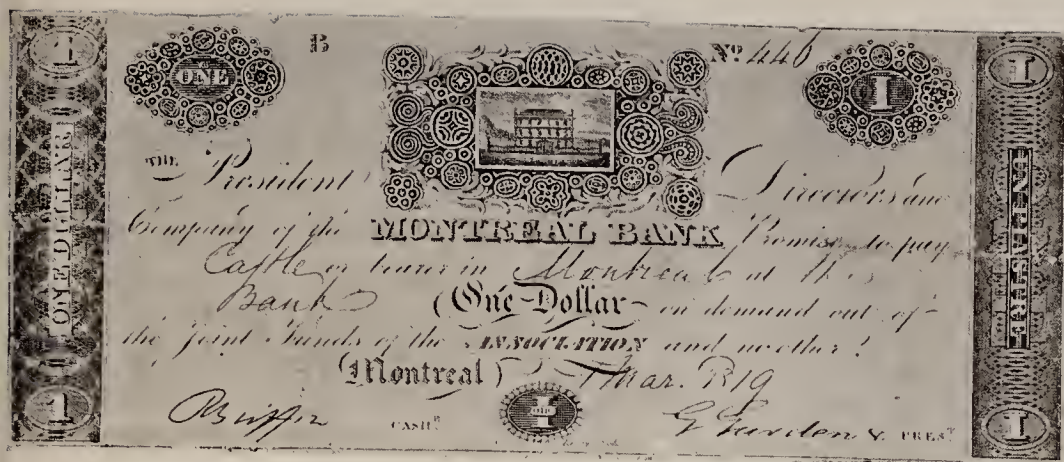 1 1
B
Nº 446
ONE
1
THE President Directors and
Company of the MONTREAL BANK Promise to pay
Castle or bearer in Montreal at the
Bank One Dollar on demand out of
the Joint Funds of the ASSOCIATION and no other.
Montreal Mar. 1819
CASHR.
ONE
1
PREST.
ONE DOLLAR
1
1
UN PIASTRE
1